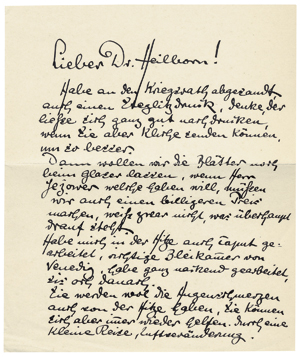 Lieber Dr. Heilborn!
Habe an den Kriegsrath abgesandt
auch einen Steglitzdruck, denke der
ließe sich ganz gut nachdrucken,
wenn Sie aber Klische senden können,
um so besser.
Dann wollen wir die Blätter noch
beim Glaser lassen, wenn Herr
Jezower welche haben will, müßten
wir auch einen billigeren Preis
machen, weiß zwar nicht, was überhaupt
drauf steht
Habe mich in der Hitze auch caput ge-
arbeitet, richtige Bleikamer von
Venedig, habe ganz nackend gearbeitet,
sie werden wol die Augenschmerzen
auch von der Hitze haben, sie können
sich aber imer wieder helfen durch eine
kleine Reise, Luftveränderung.